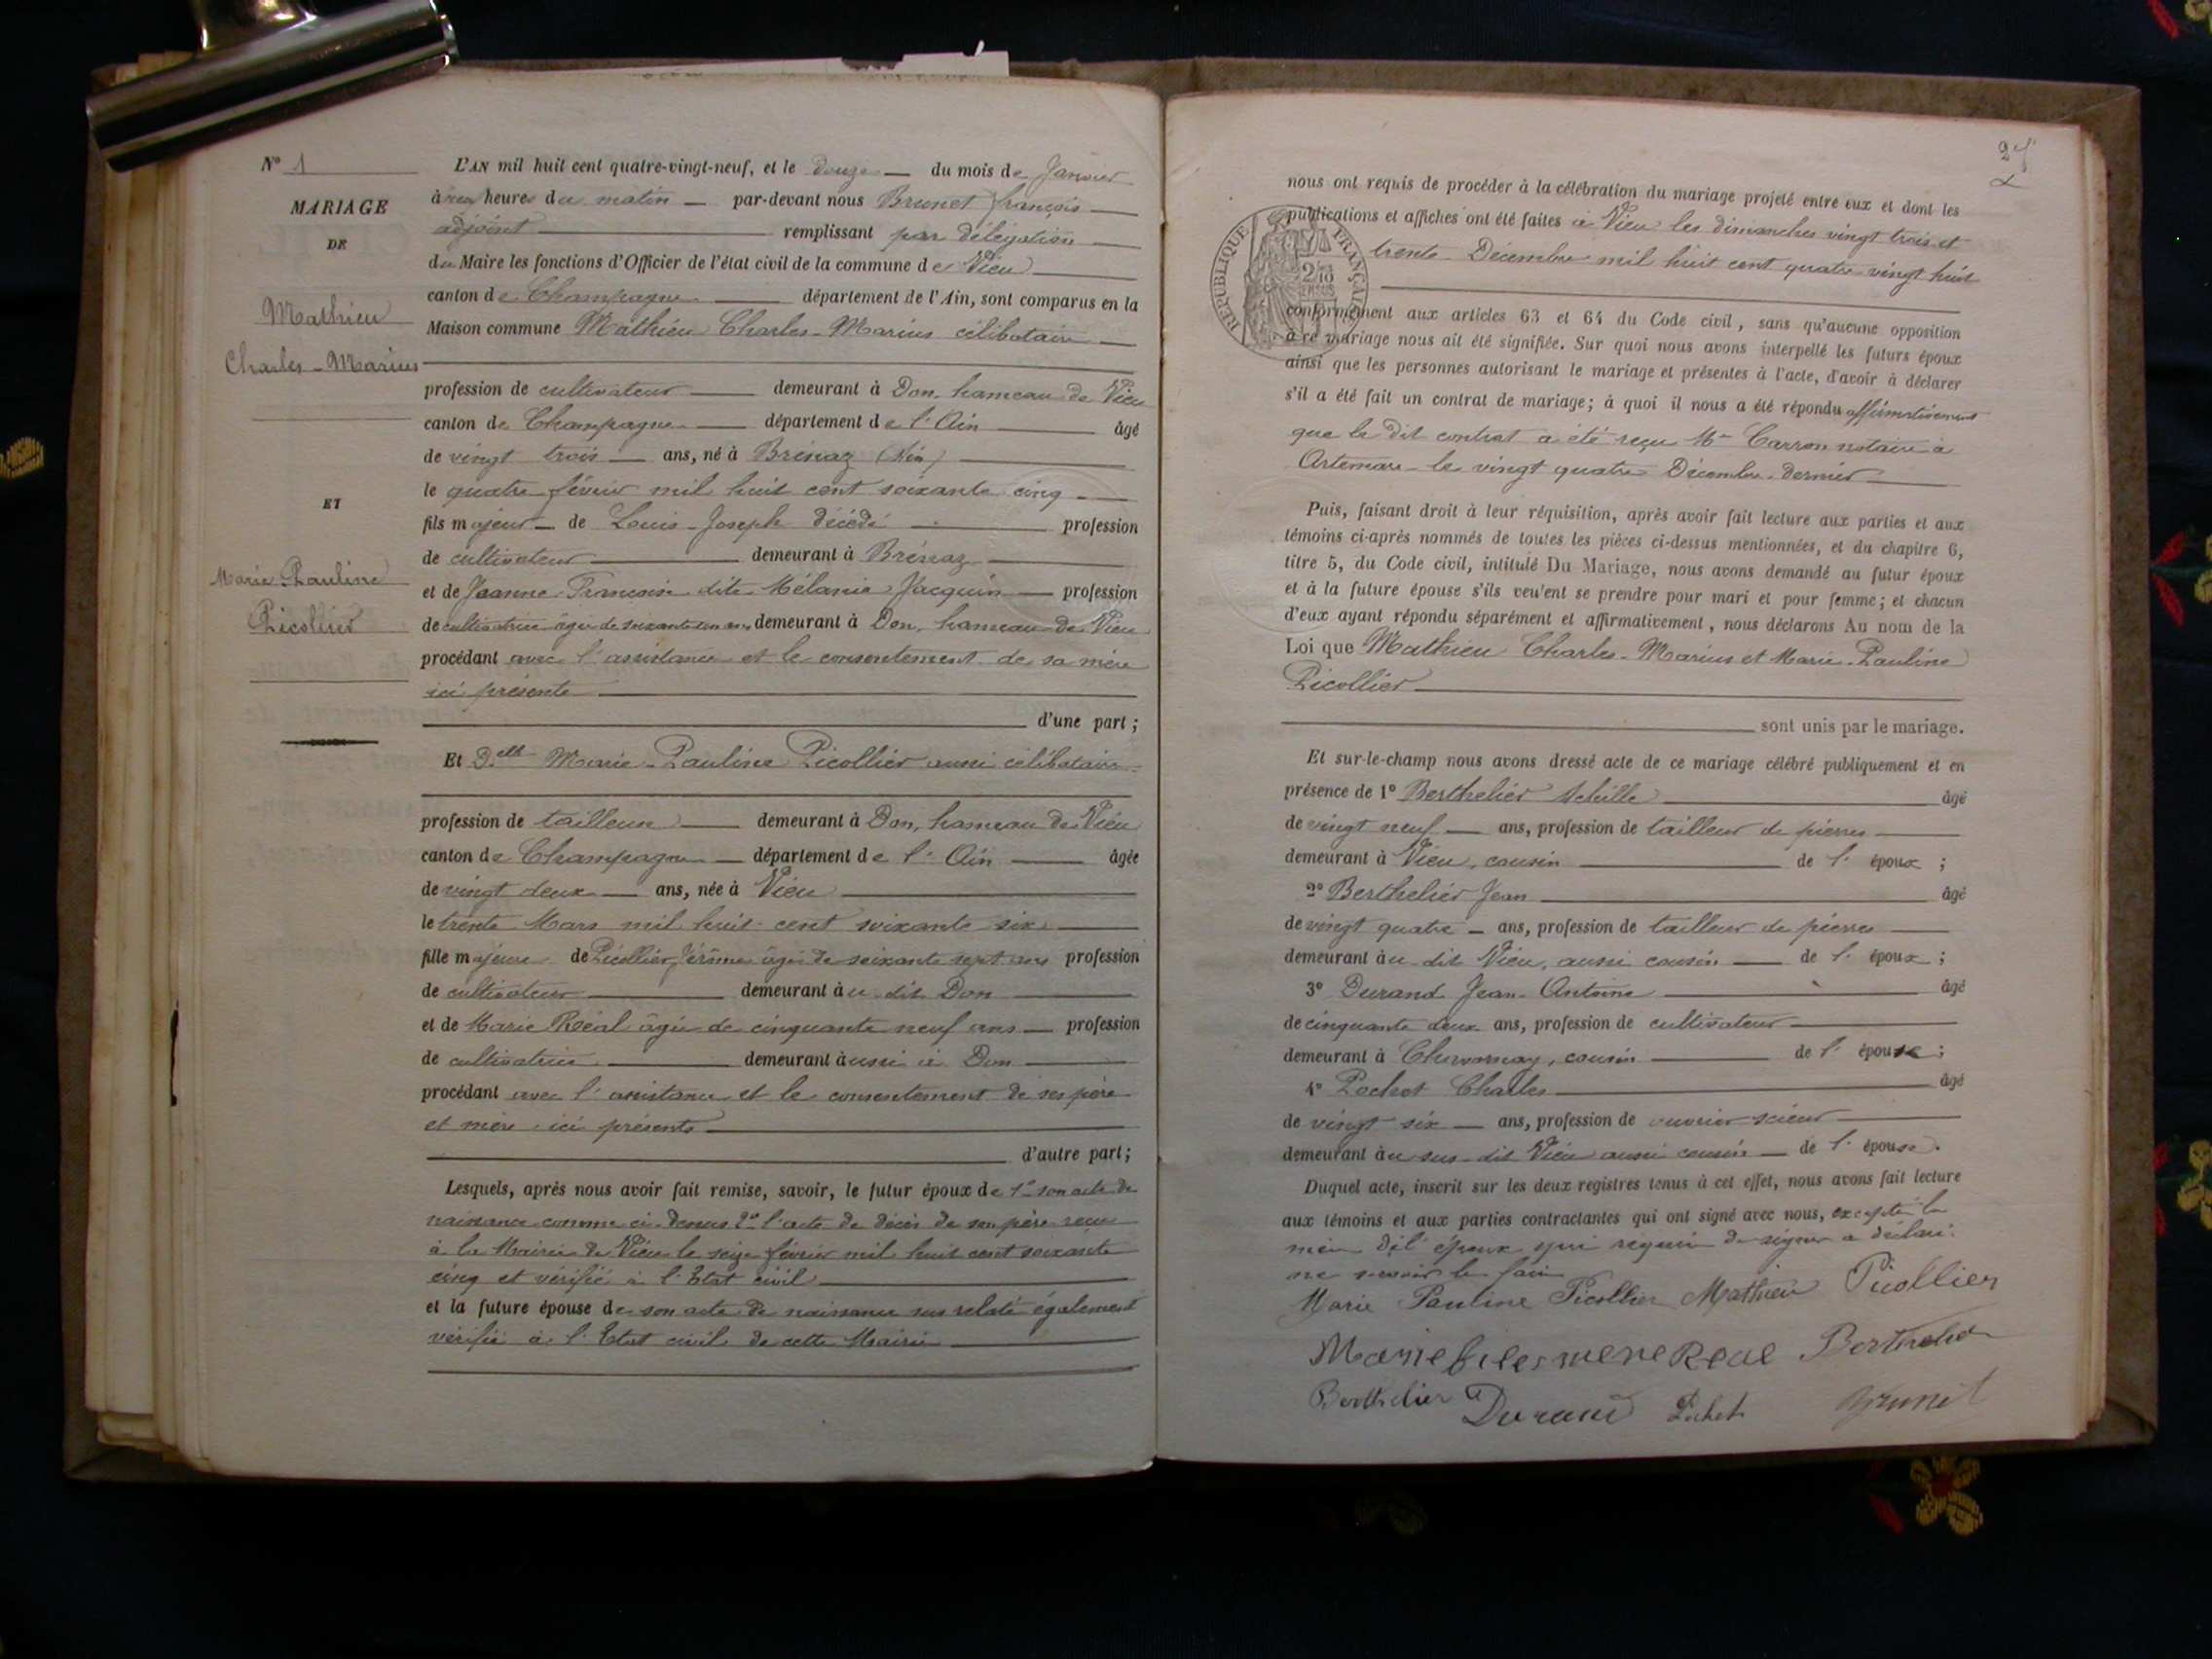 N° 1
MARIAGE
DE
Mathieu
Charles-Marius
ET
Marie-Pauline
Picollier
L'AN mil huit cent quatre-vingt-neuf, et le douze du mois de Janvier
à heures du matin par-devant nous Brunet françois
adjoint remplissant par délégation
du Maire les fonctions d'Officier de l'état civil de la commune de Vieu
canton de Champagne département de l'Ain, sont comparus en la
Maison commune Mathieu Charles-Marius célibataire
profession de cultivateur demeurant à Don, hameau de Vieu
canton de Champagne département de l'Ain âgé
de vingt trois ans, né à Brénaz (Ain)
le quatre février mil huit cent soixante cinq
fils majeur de Louis-Joseph décédé profession
de cultivateur demeurant à Brénaz
et de Jeanne Françoise dite Mélanie Jacquin profession
de cultivatrice âgée de soixante ans demeurant à Don, hameau de Vieu
procédant avec l'assistance et le consentement de sa mère
ici présente
d'une part;
Et Delle Marie-Pauline Picollier aussi célibataire
profession de tailleuse demeurant à Don, hameau de Vieu
canton de Champagne département de l'Ain âgée
de vingt deux ans, née à Vieu
le trente Mars mil huit cent soixante six
fille majeure de Picollier Jérôme âgé de soixante sept ans profession
de cultivateur demeurant au dit Don
et de Marie Réal âgée de cinquante neuf ans profession
de cultivatrice demeurant aussi à Don
procédant avec l'assistance et le consentement de ses père
et mère ici présents
d'autre part;
Lesquels, après nous avoir fait remise, savoir, le futur époux de 1° son acte de
naissance comme ci-dessus 2° l'acte de décès de son père reçu
à la Mairie de Vieu le seize février mil huit cent soixante
cinq et vérifié à l'Etat civil
et la future épouse de son acte de naissance sus relaté également
vérifié à l'Etat civil de cette Mairie
nous ont requis de procéder à la célébration du mariage projeté entre eux et dont les
publications et affiches ont été faites à Vieu les dimanches vingt trois et
trente Décembre mil huit cent quatre vingt huit
RÉPUBLIQUE FRANÇAISE
conformément aux articles 63 et 64 du Code civil, sans qu'aucune opposition
à ce mariage nous ait été signifiée. Sur quoi nous avons interpellé les futurs époux
ainsi que les personnes autorisant le mariage et présentes à l'acte, d'avoir à déclarer
s'il a été fait un contrat de mariage; à quoi il nous a été répondu affirmativement
que le dit contrat a été reçu Me Carron notaire à
Artemare le vingt quatre Décembre dernier
Puis, faisant droit à leur réquisition, après avoir fait lecture aux parties et aux
témoins ci-après nommés de toutes les pièces ci-dessus mentionnées, et du chapitre 6,
titre 5, du Code civil, intitulé Du Mariage, nous avons demandé au futur époux
et à la future épouse s'ils veulent se prendre pour mari et pour femme; et chacun
d'eux ayant répondu séparément et affirmativement, nous déclarons Au nom de la
Loi que Mathieu Charles-Marius et Marie-Pauline
Picollier
sont unis par le mariage.
Et sur-le-champ nous avons dressé acte de ce mariage célébré publiquement et en
présence de 1° Berthelier Achille âgé
de vingt neuf ans, profession de tailleur de pierres
demeurant à Vieu, cousin de l'époux;
2° Berthelier Jean âgé
de vingt quatre ans, profession de tailleur de pierres
demeurant au dit Vieu, aussi cousin de l'époux;
3° Durand Jean-Antoine âgé
de cinquante deux ans, profession de cultivateur
demeurant à Chavornay, cousin de l'épouse;
4° Pochet Charles âgé
de vingt six ans, profession de ouvrier scieur
demeurant au sus-dit Vieu aussi cousin de l'épouse.
Duquel acte, inscrit sur les deux registres tenus à cet effet, nous avons fait lecture
aux témoins et aux parties contractantes qui ont signé avec nous, excepté la
mère de l'époux qui requise de signer a déclaré
ne savoir le faire
Marie Pauline Picollier Mathieu Picollier
Marie Real Berthelier
Berthelier Durand Pochet Brunet